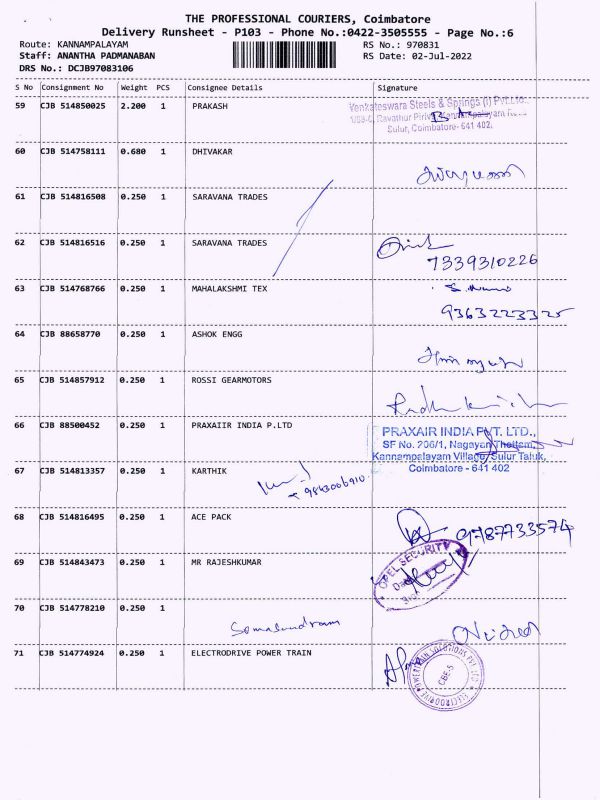 THE PROFESSIONAL COURIERS, Coimbatore
Delivery Runsheet - P103 - Phone No.:0422-3505555 - Page No.:6
Route: KANNAMPALAYAM RS No.: 970831
Staff: ANANTHA PADMANABAN RS Date: 02-Jul-2022
DRS No.: DCJB97083106
S No Consignment No Weight PCS Consignee Details Signature
59 CJB 514850025 2.200 1 PRAKASH
Venkateswara Steels & Springs (I) Pvt.Ltd.,
Sulur, Coimbatore- 641 402.
60 CJB 514758111 0.680 1 DHIVAKAR
61 CJB 514816508 0.250 1 SARAVANA TRADES
62 CJB 514816516 0.250 1 SARAVANA TRADES
7339310226
63 CJB 514768766 0.250 1 MAHALAKSHMI TEX
9363223325
64 CJB 88658770 0.250 1 ASHOK ENGG
65 CJB 514857912 0.250 1 ROSSI GEARMOTORS
66 CJB 88500452 0.250 1 PRAXAIIR INDIA P.LTD
PRAXAIR INDIA PVT. LTD.,
SF No. 206/1, Nagayan Thottam,
Kannampalayam Village, Sulur Taluk,
Coimbatore - 641 402
67 CJB 514813357 0.250 1 KARTHIK
9843006910
68 CJB 514816495 0.250 1 ACE PACK
9787733574
69 CJB 514843473 0.250 1 MR RAJESHKUMAR
OPEL SECURITY
70 CJB 514778210 0.250 1
Somasundram
71 CJB 514774924 0.250 1 ELECTRODRIVE POWER TRAIN
ELECTRODRIVE POWERTRAIN SOLUTIONS PVT LTD
CBE-5